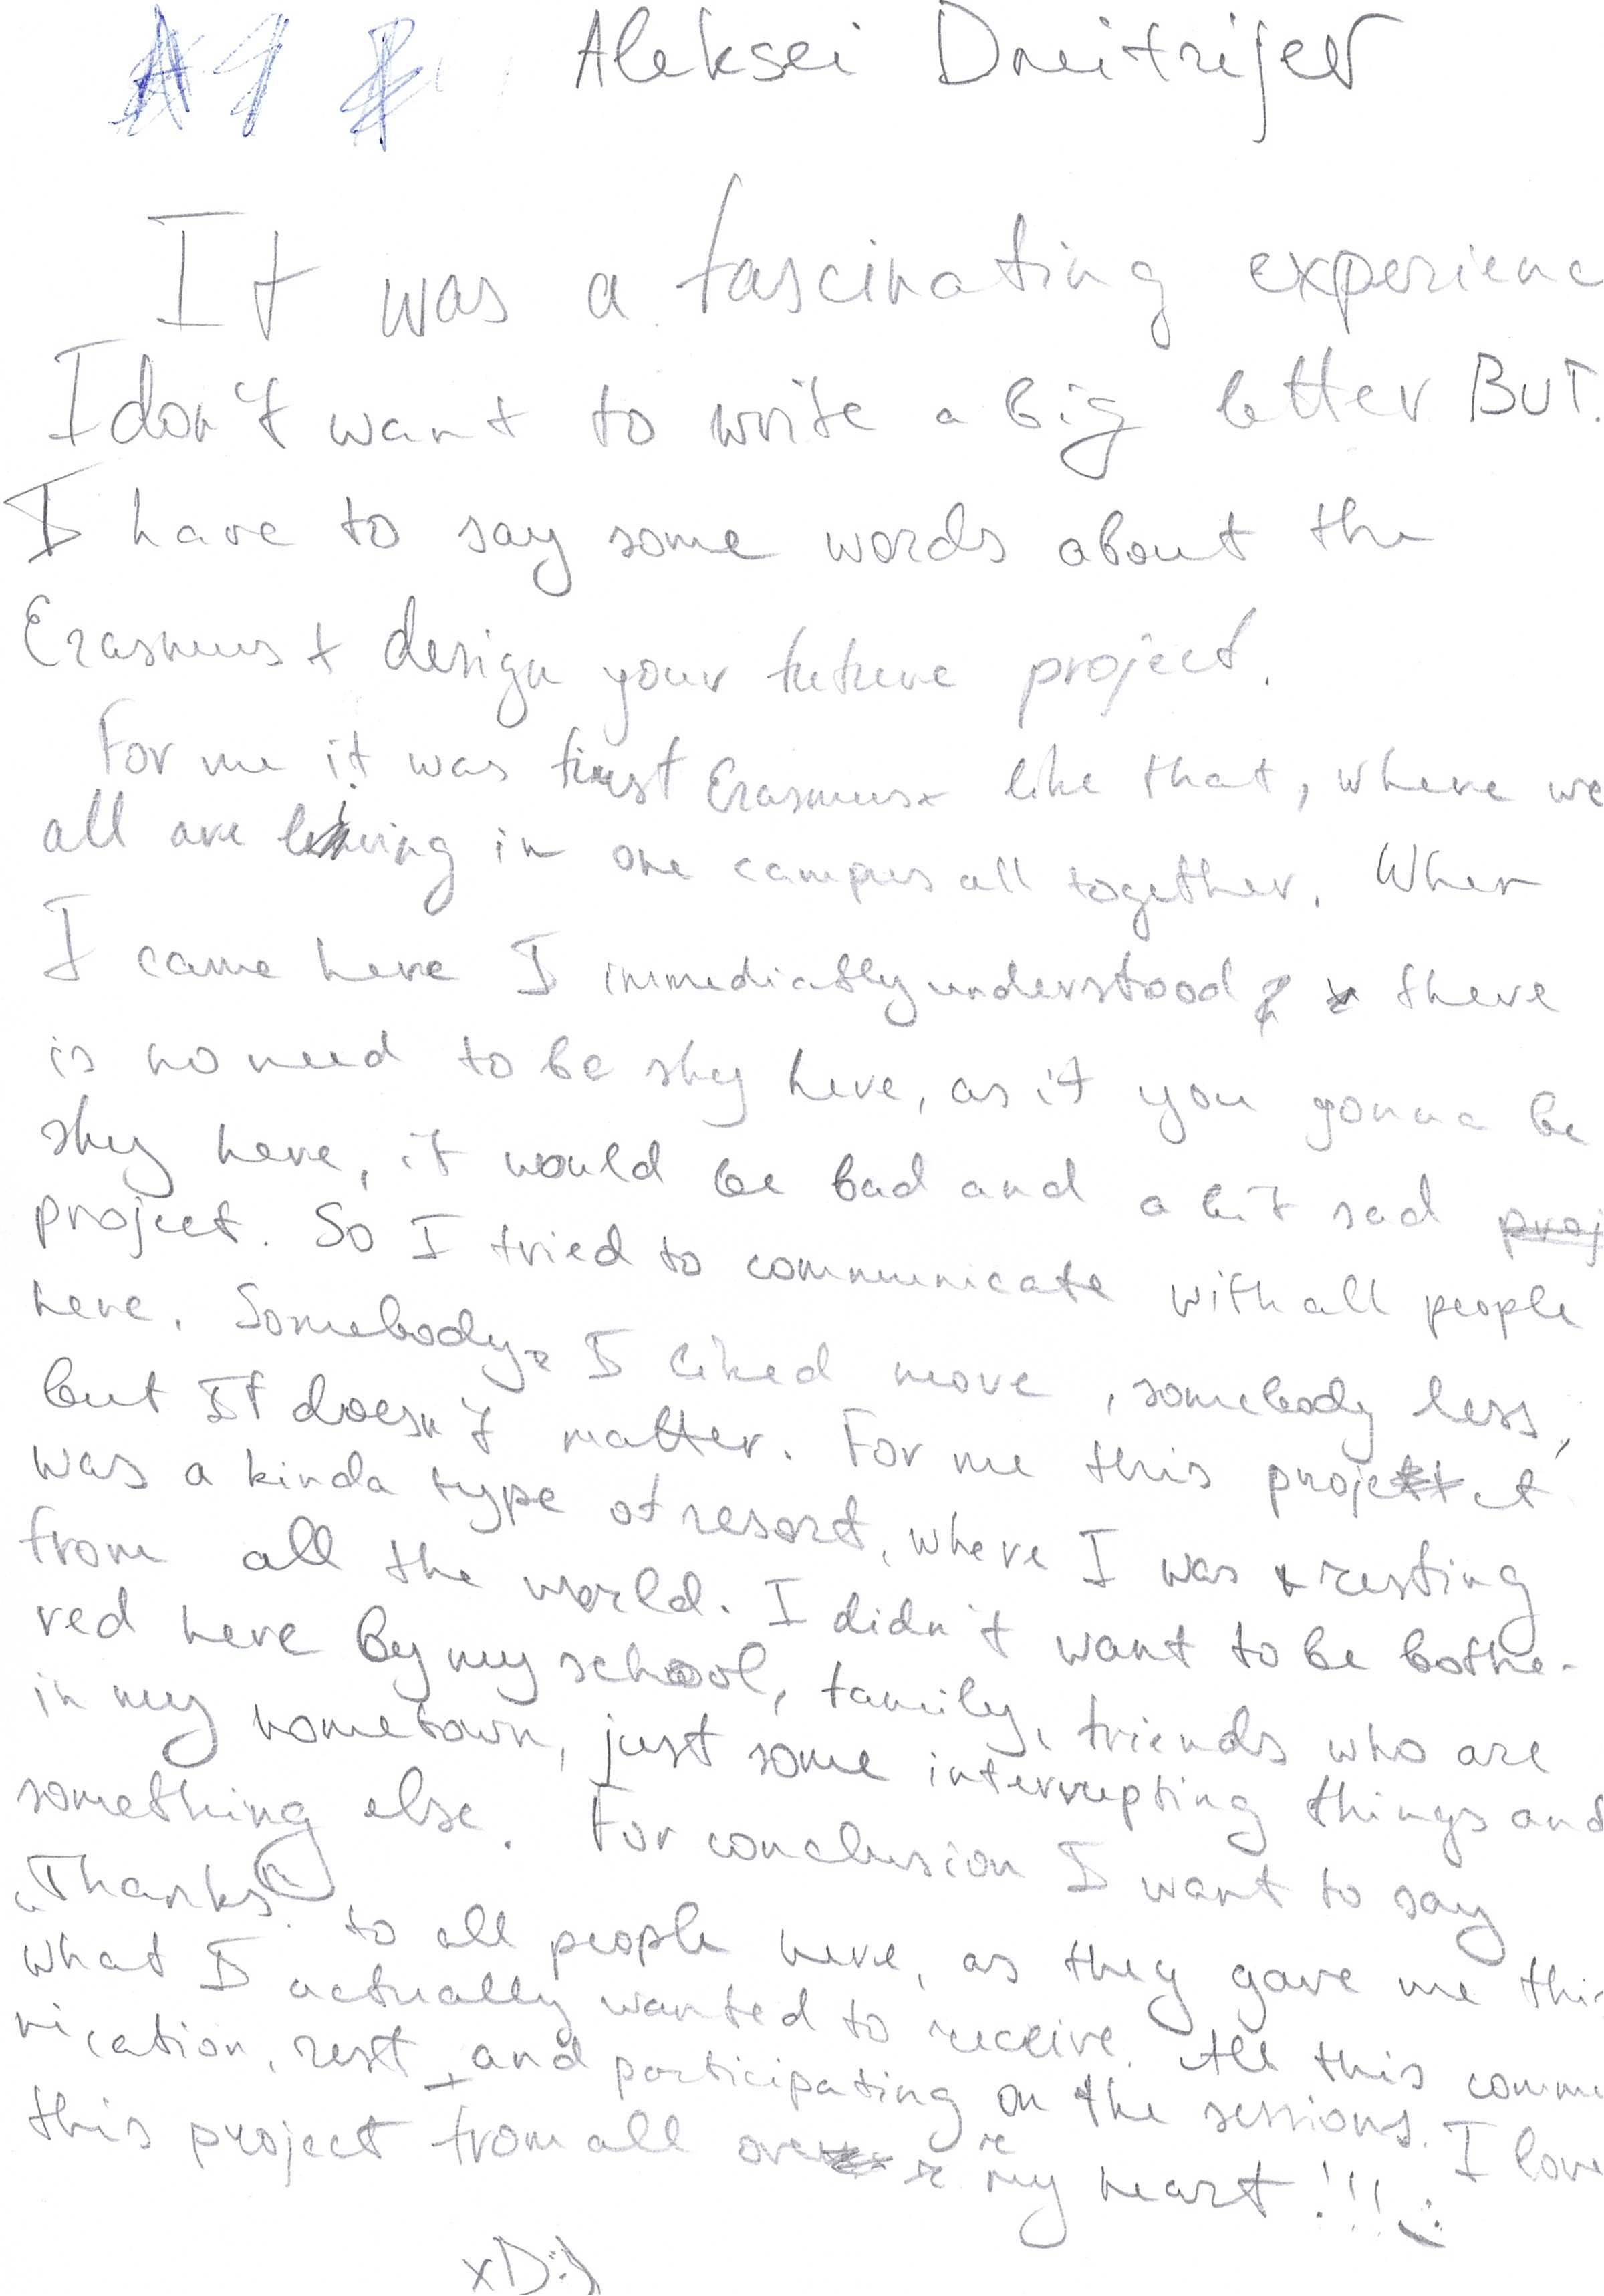 Aleksei Dmitrijev
It was a fascinating experienc
I don't want to write a big letter BUT.
I have to say some words about the
Erasmus+ design your future project.
For me it was first Erasmus+ like that, where we
all are living in one campus all together. When
I came here I immediatly understood there
is no need to be shy here, as if you gonna be
shy here, it would be bad and a bit sad proj
project. So I tried to communicate with all people
here. Somebody I liked more, somebody less,
but It doesn't matter. For me this project
was a kinda type of resort, where I was resting
from all the world. I didn't want to be bothe-
red here by my school, family, friends who are
in my hometown, just some interrupting things and
something else. For conclusion I want to say
"Thanks" to all people here, as they gave me thi
what I actually wanted to receive. All this commu
nication, rest, and participating on the sessions. I love
this project from all over my heart!!! :)
xD:)